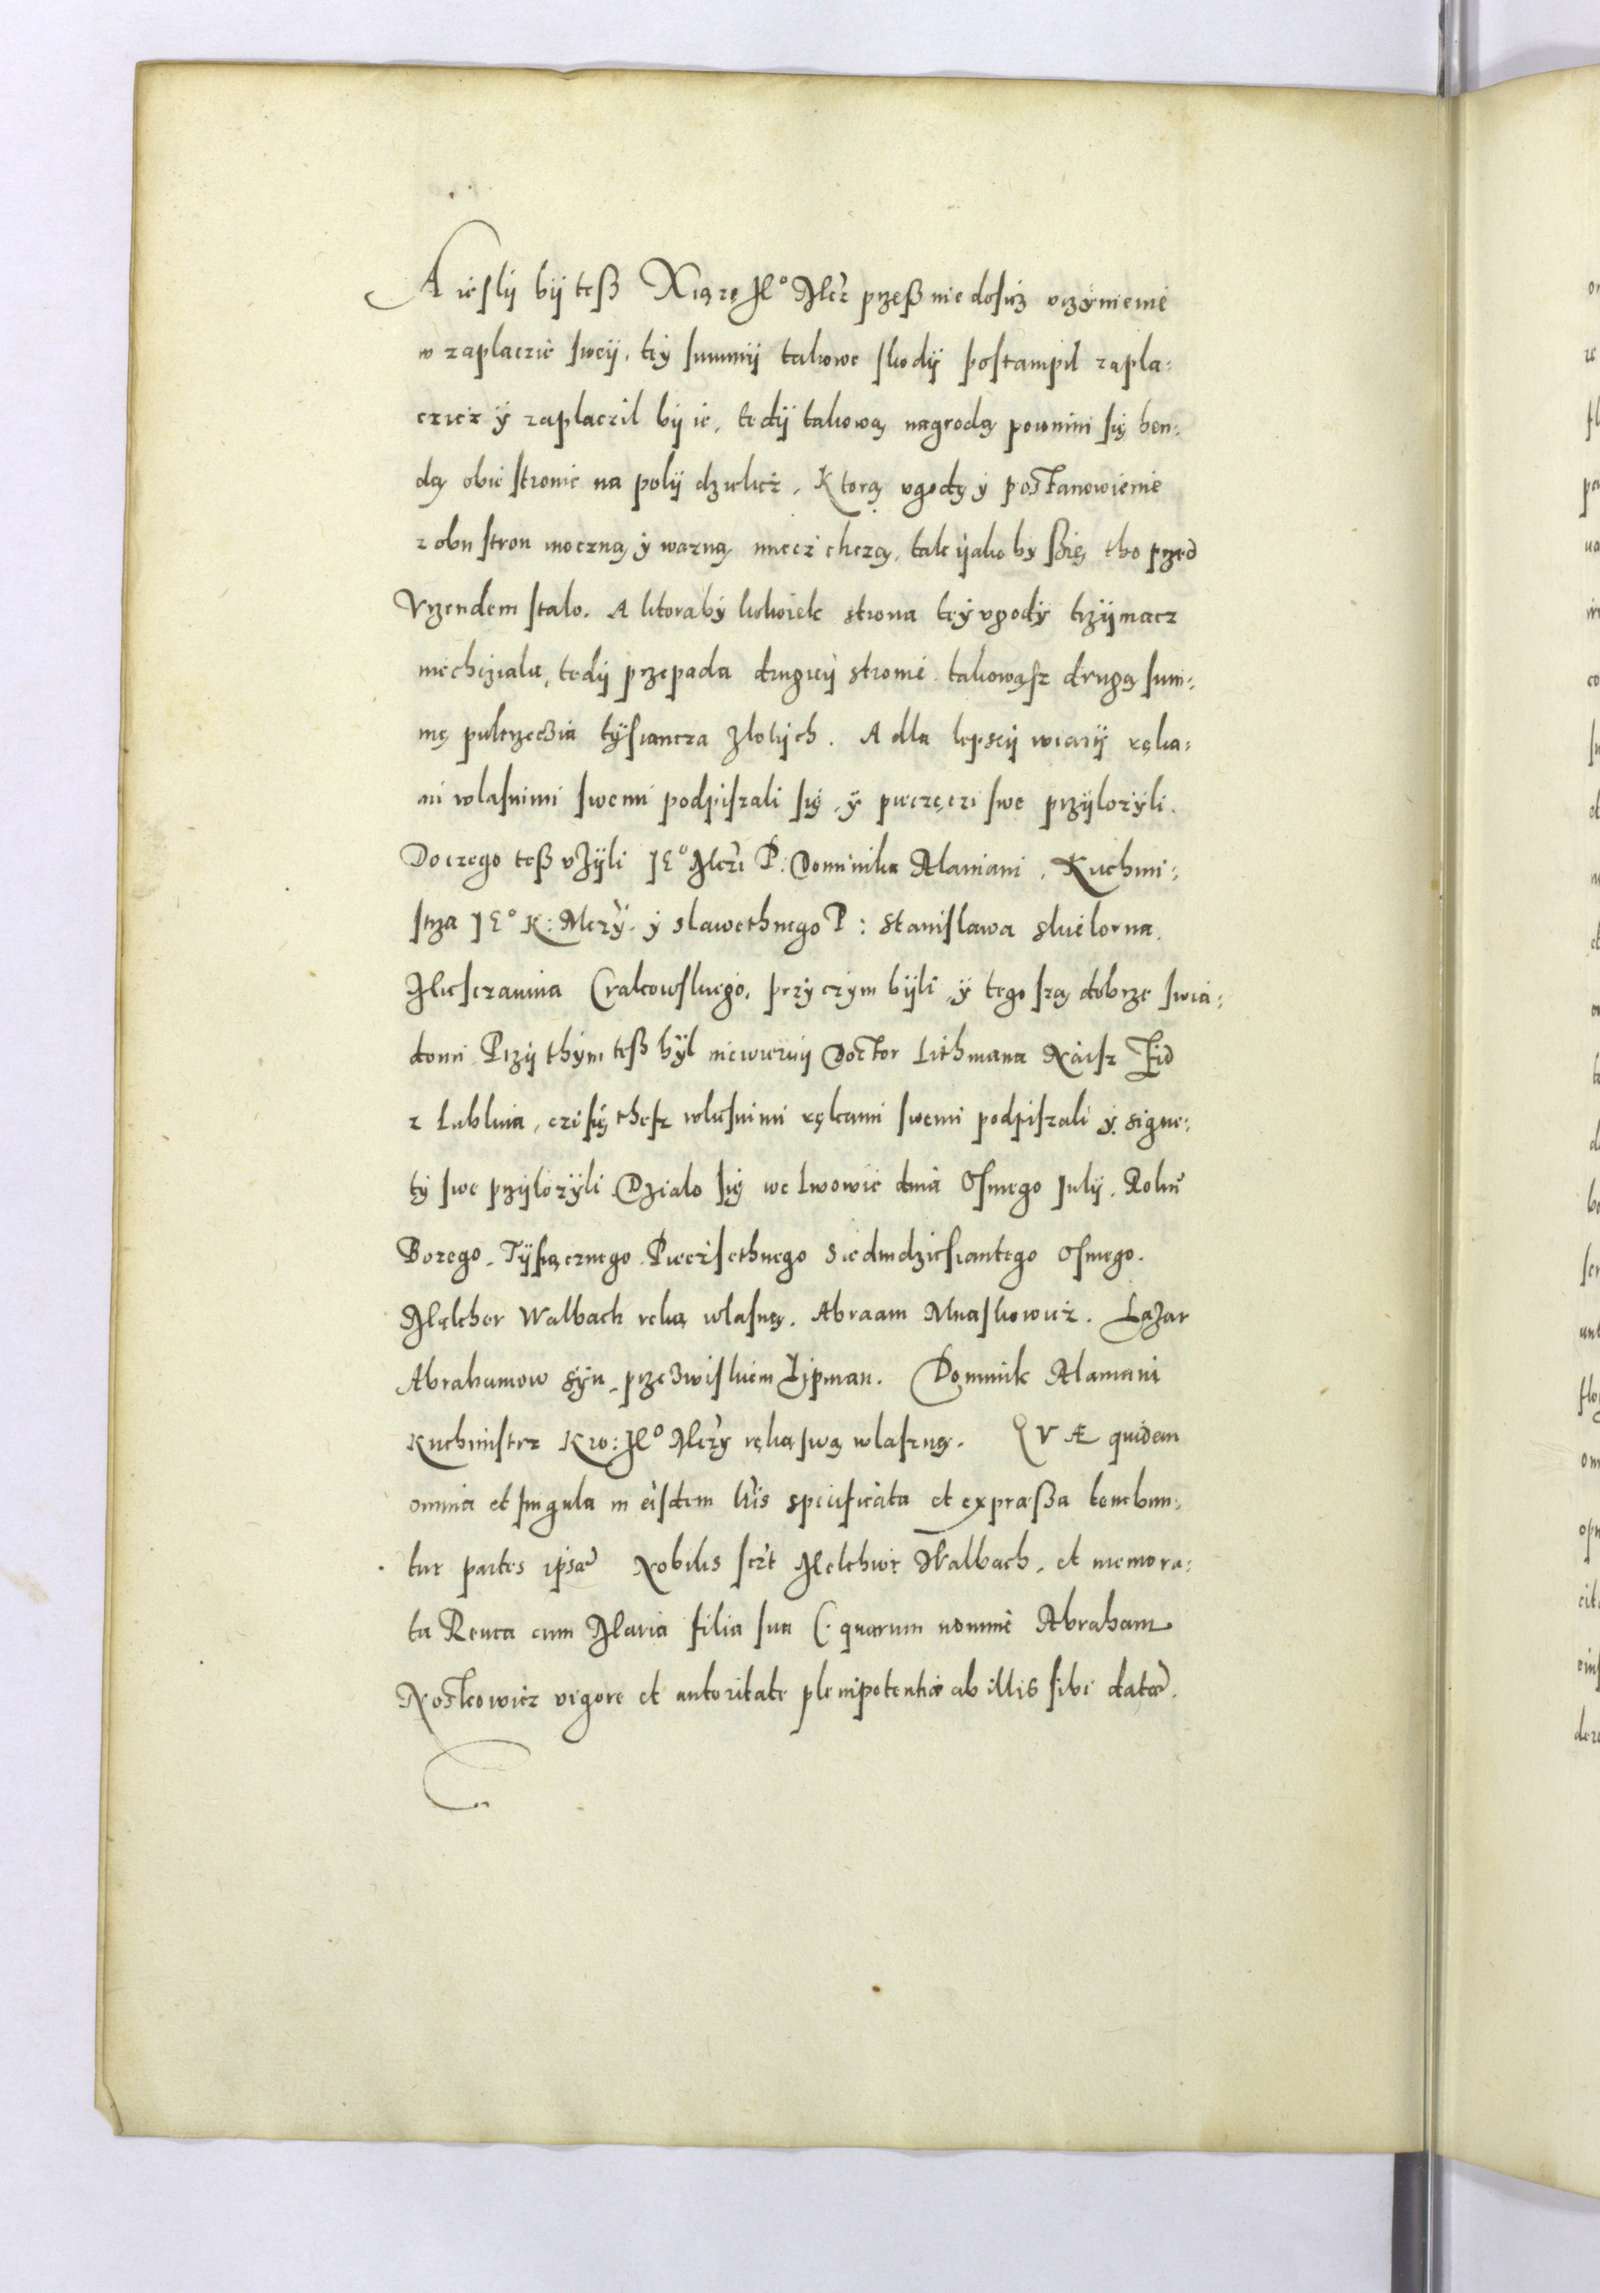 A iesly by teß Xiązę Jeº Mcz przeß nie dosicz vczynienie
w zaplaczie swey, tey summy takowe skody postampil zapla:
czicz y zaplaczil by ie, tedy takową nagrodą powinni się ben:
dą obie stronie na poly dzielicz. Ktorą vgodę y postanowienie
z obu stron moczną y wazną miecz chczą, tak yakoby ßię tho przed
Vrzendem stalo. A ktoraby kolwiek strona tey vgody trzymacz
niechcziala, tedy przepada drugiey stronie takowąsz drugą sum:
mę pultrzeczia tysiancza zlotych. A dla lepsey wiary ręka:
mi wlasnimi swemi podpiszali się, y pieczęczi swe przylozyli.
Do czego teß vzyli Jeº Mczi P: Dominika Alamani, Kuchmi:
strza Jeº K: Mczy. y slawethnego P: Stanislawa
Miesczanina Crakowskiego, przy czym byli, y tego szą dobrze swia:
domi Przy thym teß byl niewierny Doctor Lithmana Żid
z Lublina, czi się thesz wlasnimi rękami swemi podpiszali y signe:
ty swe przylozyli Dzialo się we Lwowie dnia Osmego July. Roku
Bozego Tysiącznego Pieczsethnego Siedmdziesiantego Osmego.
Melcher Walbach ręką wlasną. Abraam Mnaskowicz. Lazar
Abrahamow syn, przezwiskiem Lipman. Dominik Alamani
Kuchmistrz Kro: Jeº Mczy ręką swą wlaszną. QVÆ quidem
omnia et singula in eisdem lris specificata et expræßa tenebun:
tur partes ipsæ Nobilis sczt Melchior Walbach, et memora:
ta Renca cum Maria filia sua (: quarum nomine Abraham
Noskowicz vigore et autoritate plenipotentiæ ab illis sibi datæ.